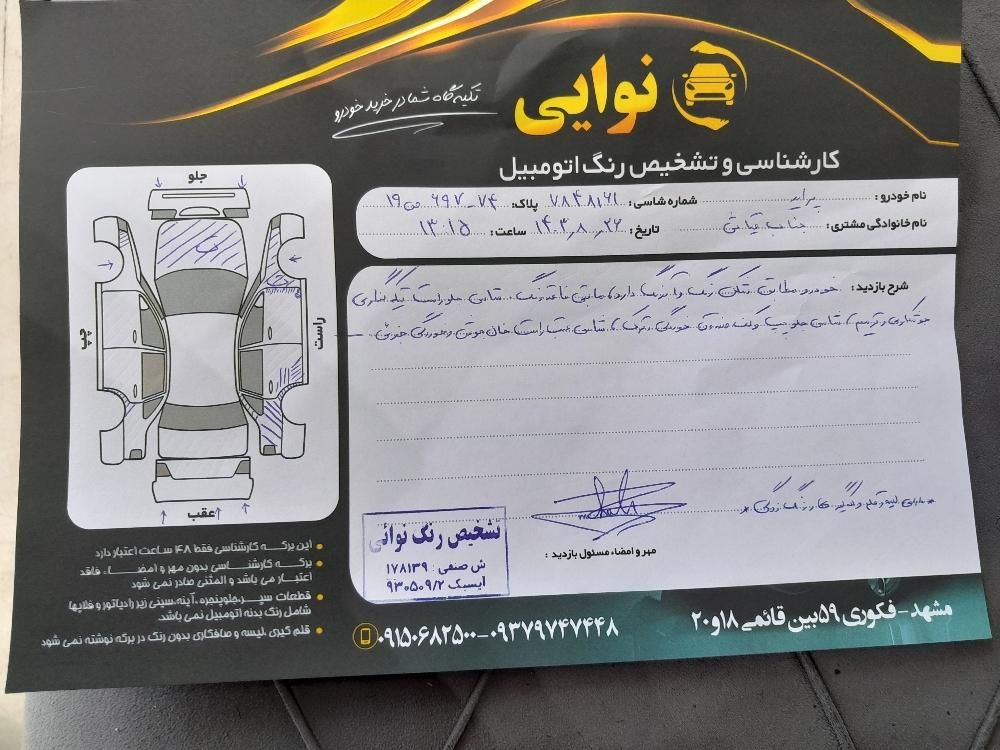 نوایی
تکیه گاه شما در خرید خودرو
کارشناسی و تشخیص رنگ اتومبیل
نام خودرو : پراید شماره شاسی : ۷۸۴۸۱۶۱ پلاک: ۷۴-۶۹۷ ص ۱۹
نام خانوادگی مشتری : جناب تاریخ : ۱۴۰۳,۸,۲۶ ساعت : ۱۳:۱۵
جلو
چپ
راست
عقب
شرح بازدید : خودرو مطابق شکل رنگ و آبرنگ دارد، مابقی فاقد رنگ، شاسی جلو راست
شاسی جلو چپ و کف صندوق خوردگی شاسی عقب راست خوردگی جزئی
مهر و امضاء مسئول بازدید :
تشخیص رنگ نوائی
ش صنفی : ۱۷۸۱۳۹
آیسیک ۹۳۰۵۰۹/۲
این برگه کارشناسی فقط ۴۸ ساعت اعتبار دارد
برگه کارشناسی بدون مهر و امضاء فاقد
اعتبار می باشد و المثنی صادر نمی شود
قطعات سپر،جلوپنجره،آینه،سینی زیر رادیاتور و فلاپها
شامل رنگ بدنه اتومبیل نمی باشد.
قلم گیری،لیسه و صافکاری بدون رنگ در برگه نوشته نمی شود
۰۹۱۵۰۶۸۲۵۰۰-۰۹۳۷۹۷۴۷۴۴۸
مشهد- فکوری ۵۹ بین قائمی ۱۸ و ۲۰